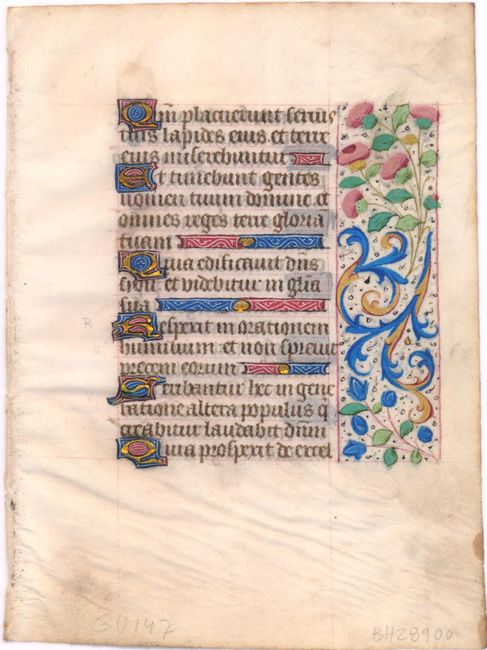 Qm̄ placuerunt seruis
tuis lapides eius et terre
eius miserebuntur
Et timebunt gentes
nomen tuum domine et
omnes reges terre gloria
tuam
Quia edificauit dn̄s
sion et videbitur in glia
sua
Respexit in orationem
humilium et non spreuit
precem eorum
Scribantur hec in gene
ratione altera populus q
creabitur laudabit dn̄m
Quia prospexit de excel
R
GU147
BH28900